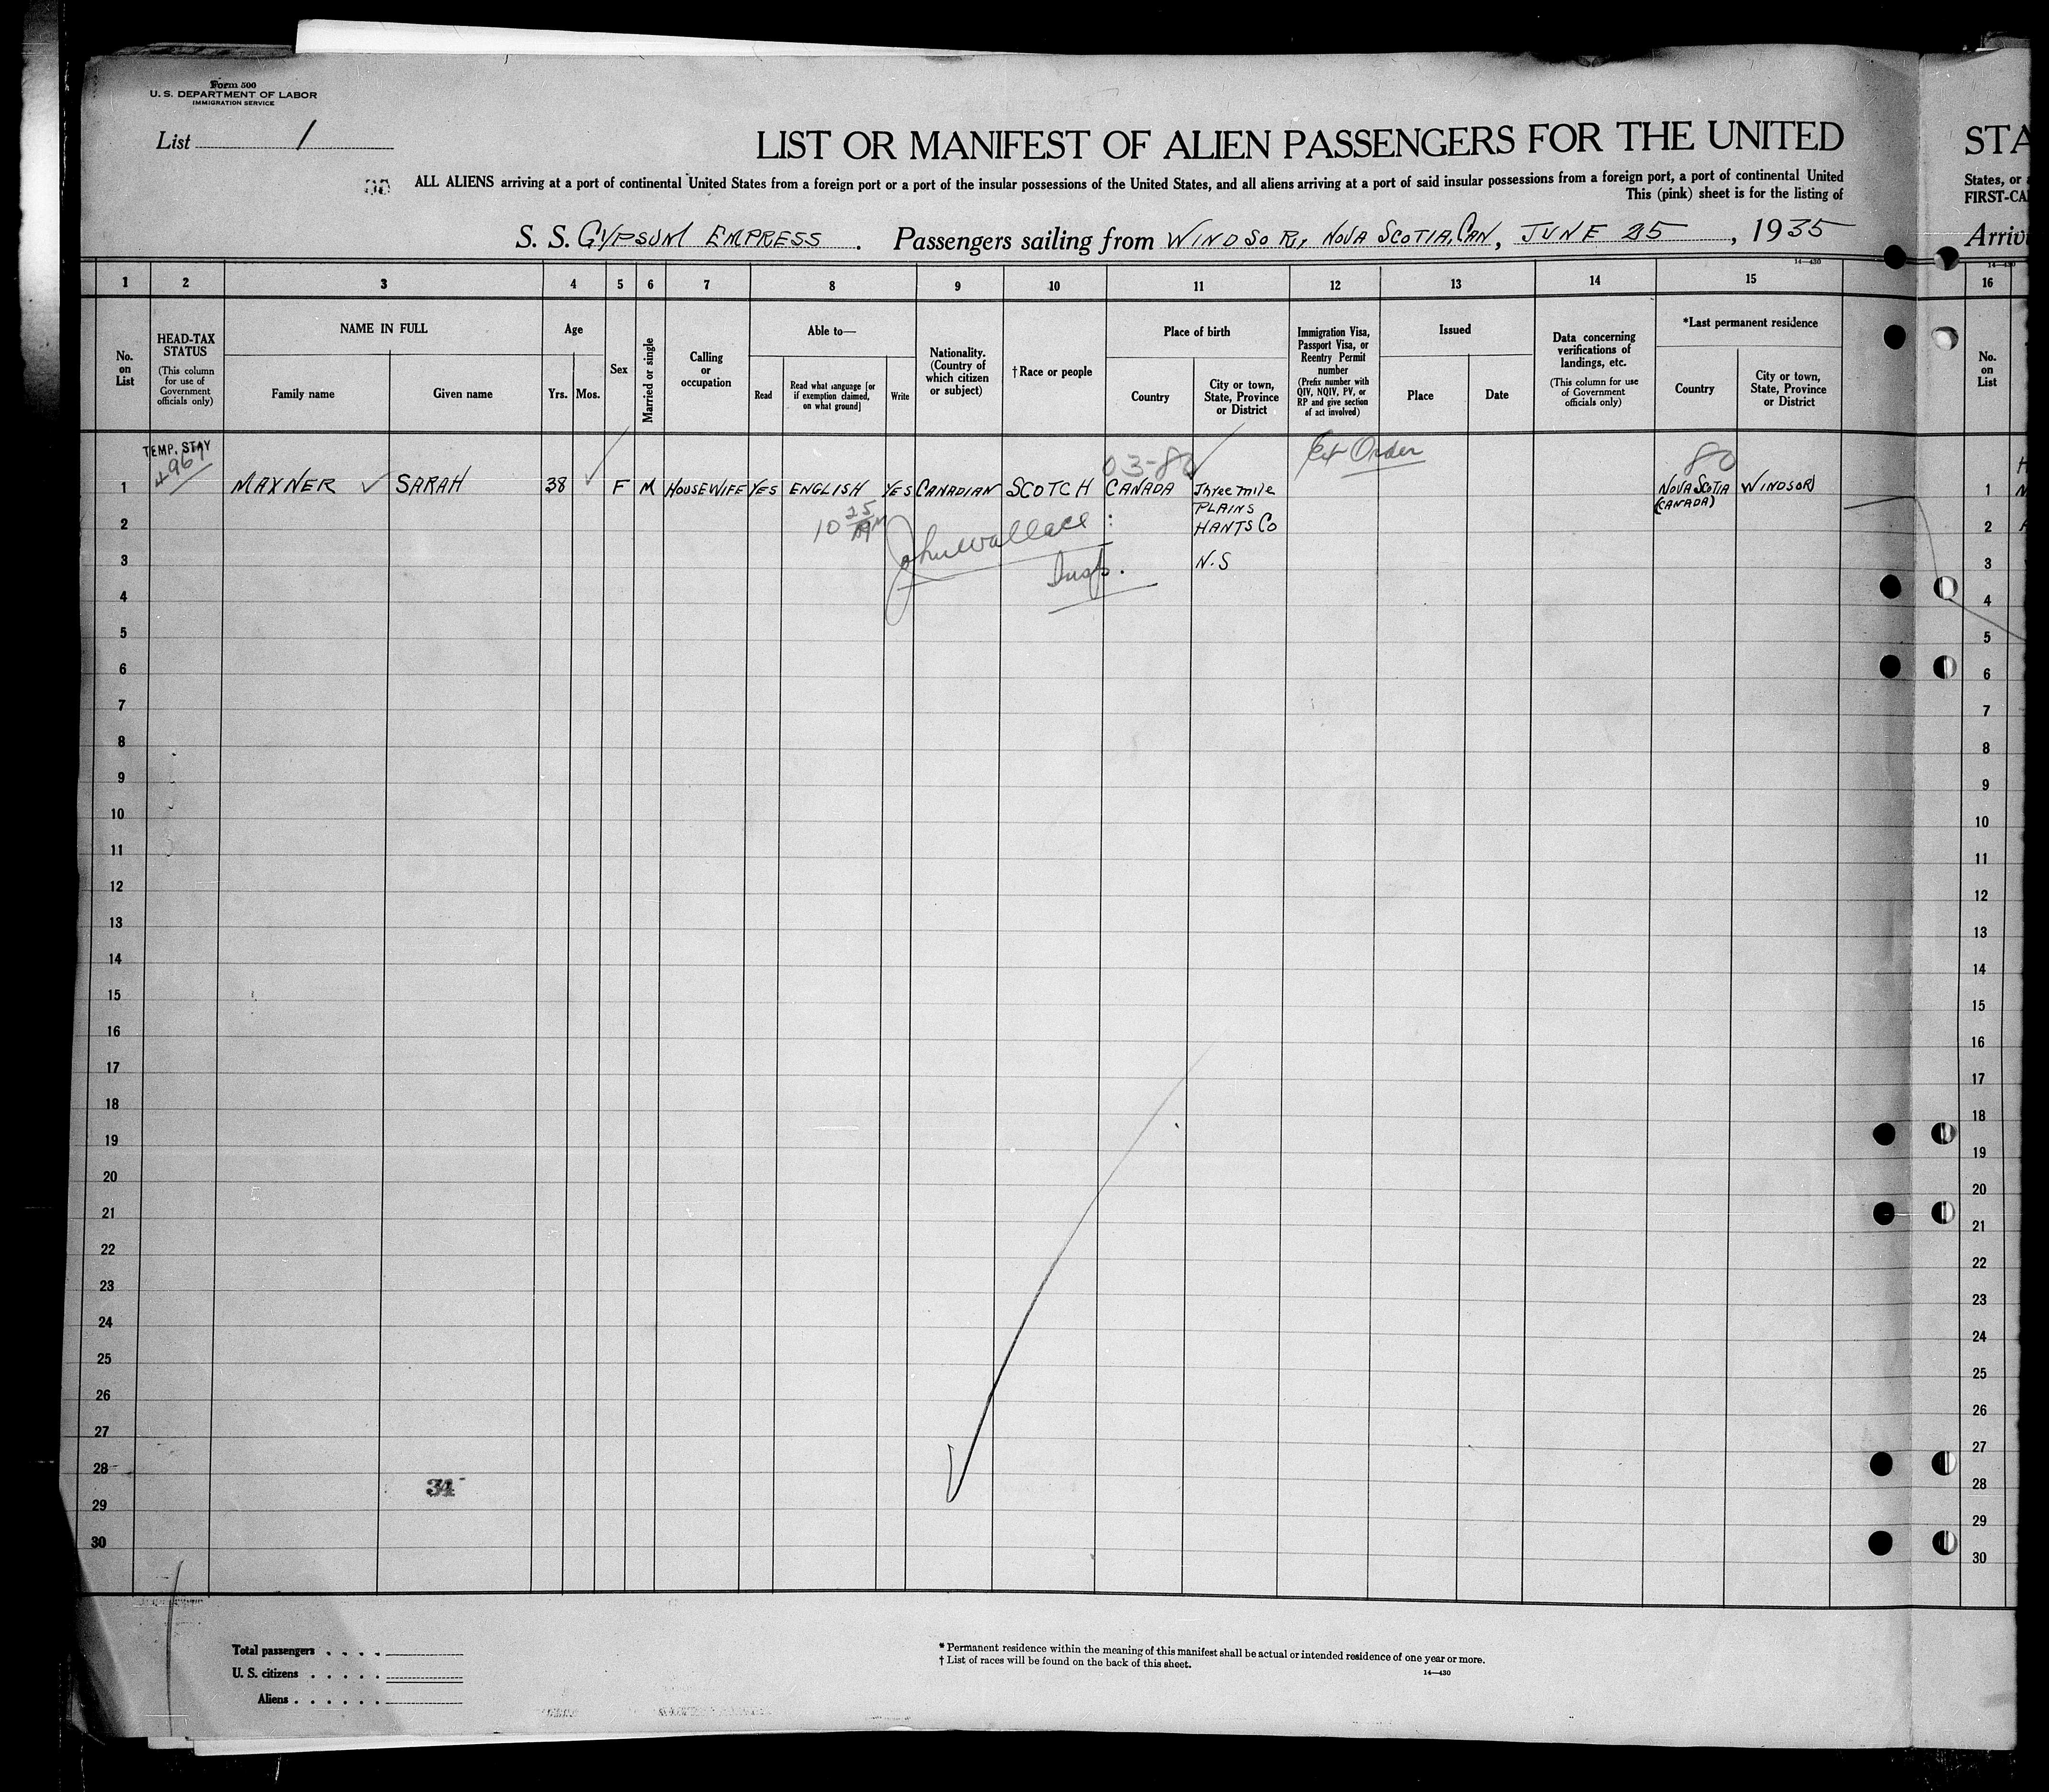 Form 500
U. S. DEPARTMENT OF LABOR
IMMIGRATION SERVICE
List 1
LIST OR MANIFEST OF ALIEN PASSENGERS FOR THE UNITED
STA
ALL ALIENS arriving at a port of continental United States from a foreign port or a port of the insular possessions of the United States, and all aliens arriving at a port of said insular possessions from a foreign port, a port of continental United
States, or
This (pink) sheet is for the listing of
FIRST-CA
S. S. GYPSUM EMPRESS. Passengers sailing from WINDSOR, NOVA SCOTIA, CAN, JUNE 25, 1935
Arriv
14—430
1 2 3 4 5 6 7 8 9 10 11 12 13 14 15 16
No. on List
HEAD-TAX STATUS
(This column for use of Government officials only)
NAME IN FULL
Family name
Given name
Age
Yrs. Mos.
Sex
Married or single
Calling or occupation
Able to—
Read
Read what language [or if exemption claimed, on what ground]
Write
Nationality. (Country of which citizen or subject)
†Race or people
Place of birth
Country
City or town, State, Province or District
Immigration Visa, Passport Visa, or Reentry Permit number
(Prefix number with QIV, NQIV, PV, or RP and give section of act involved)
Issued
Place
Date
Data concerning verifications of landings, etc.
(This column for use of Government officials only)
*Last permanent residence
Country
City or town, State, Province or District
No. on List
TEMP. STAY
03-80
Ex Order
80
1 MAXNER SARAH 38 F M HOUSEWIFE YES ENGLISH YES CANADIAN SCOTCH CANADA Three mile NOVA SCOTIA WINDSOR 1
PLAINS (CANADA)
2 10 25 AM John Wallace HANTS CO 2
3 Insp. N.S 3
4 4
5 5
6 6
7 7
8 8
9 9
10 10
11 11
12 12
13 13
14 14
15 15
16 16
17 17
18 18
19 19
20 20
21 21
22 22
23 23
24 24
25 25
26 26
27 27
28 34 28
29 29
30 30
Total passengers . . . .
U. S. citizens . . . . .
Aliens . . . . . .
* Permanent residence within the meaning of this manifest shall be actual or intended residence of one year or more.
† List of races will be found on the back of this sheet.
14—430